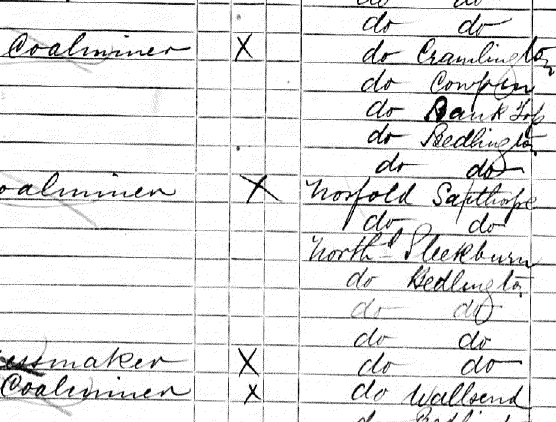 do do
do do
Coalminer X do Cramlington
do Cowpen
do Bank Top
do Bedlington
do do
oalminer X Norfold Sapthorpe
do do
North Sleekburn
do Bedlington
do do
do do
essmaker X do do
Coalminer X do Wallsend
do Bedling